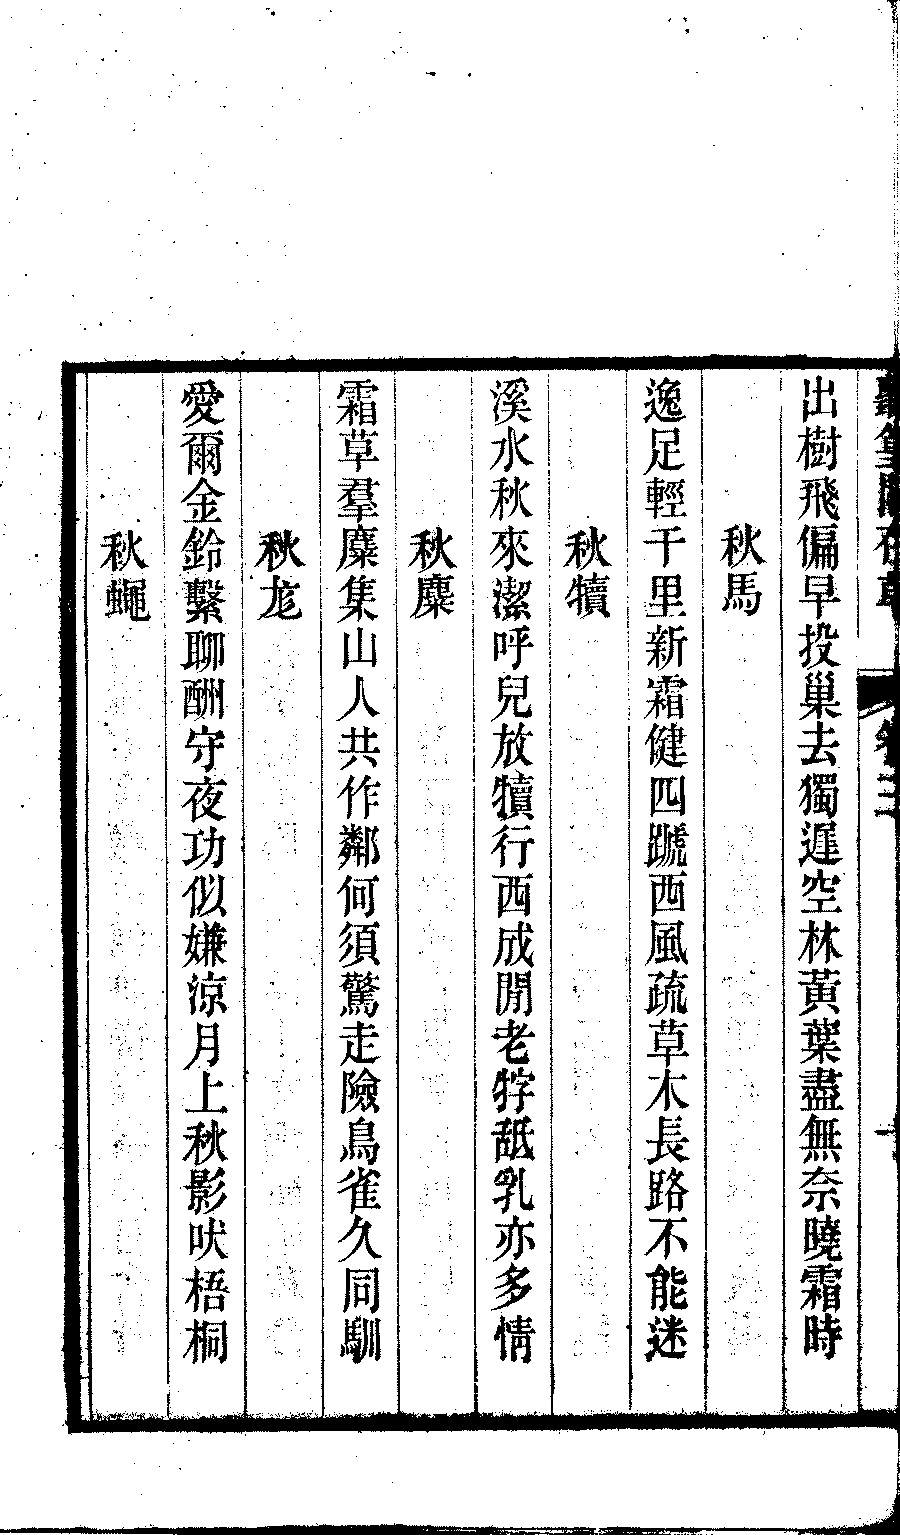 出樹飛偏早投巢去獨遲空林黃葉盡無奈曉霜時
秋馬
逸足輕千里新霜健四蹏西風疏草木長路不能迷
秋犢
溪水秋來潔呼兒放犢行西成閒老牸舐乳亦多情
秋麋
霜草羣麋集山人共作鄰何須驚走險鳥雀久同馴
秋尨
愛爾金鈴繫聊酬守夜功似嫌涼月上秋影吠梧桐
秋蠅